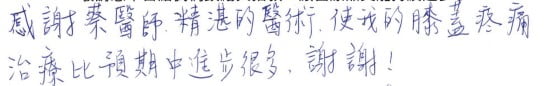 感謝蔡醫師.精湛的醫術.使我的膝蓋疼痛
治療比預期中進步很多、謝謝!